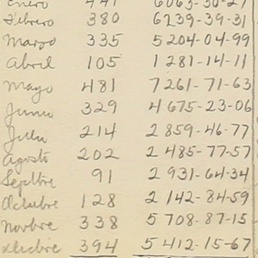 Enero 441 6063-30-27
Febrero 380 6239-39-31
Marzo 335 5204-04-99
Abril 105 1281-14-11
Mayo 481 7261-71-63
Junio 329 4675-23-06
Julio 214 2859-46-77
Agosto 202 2485-77-57
Septbre 91 2931-64-34
Octubre 128 2142-84-59
Novbre 338 5708-87-15
Dicbre 394 5412-15-67